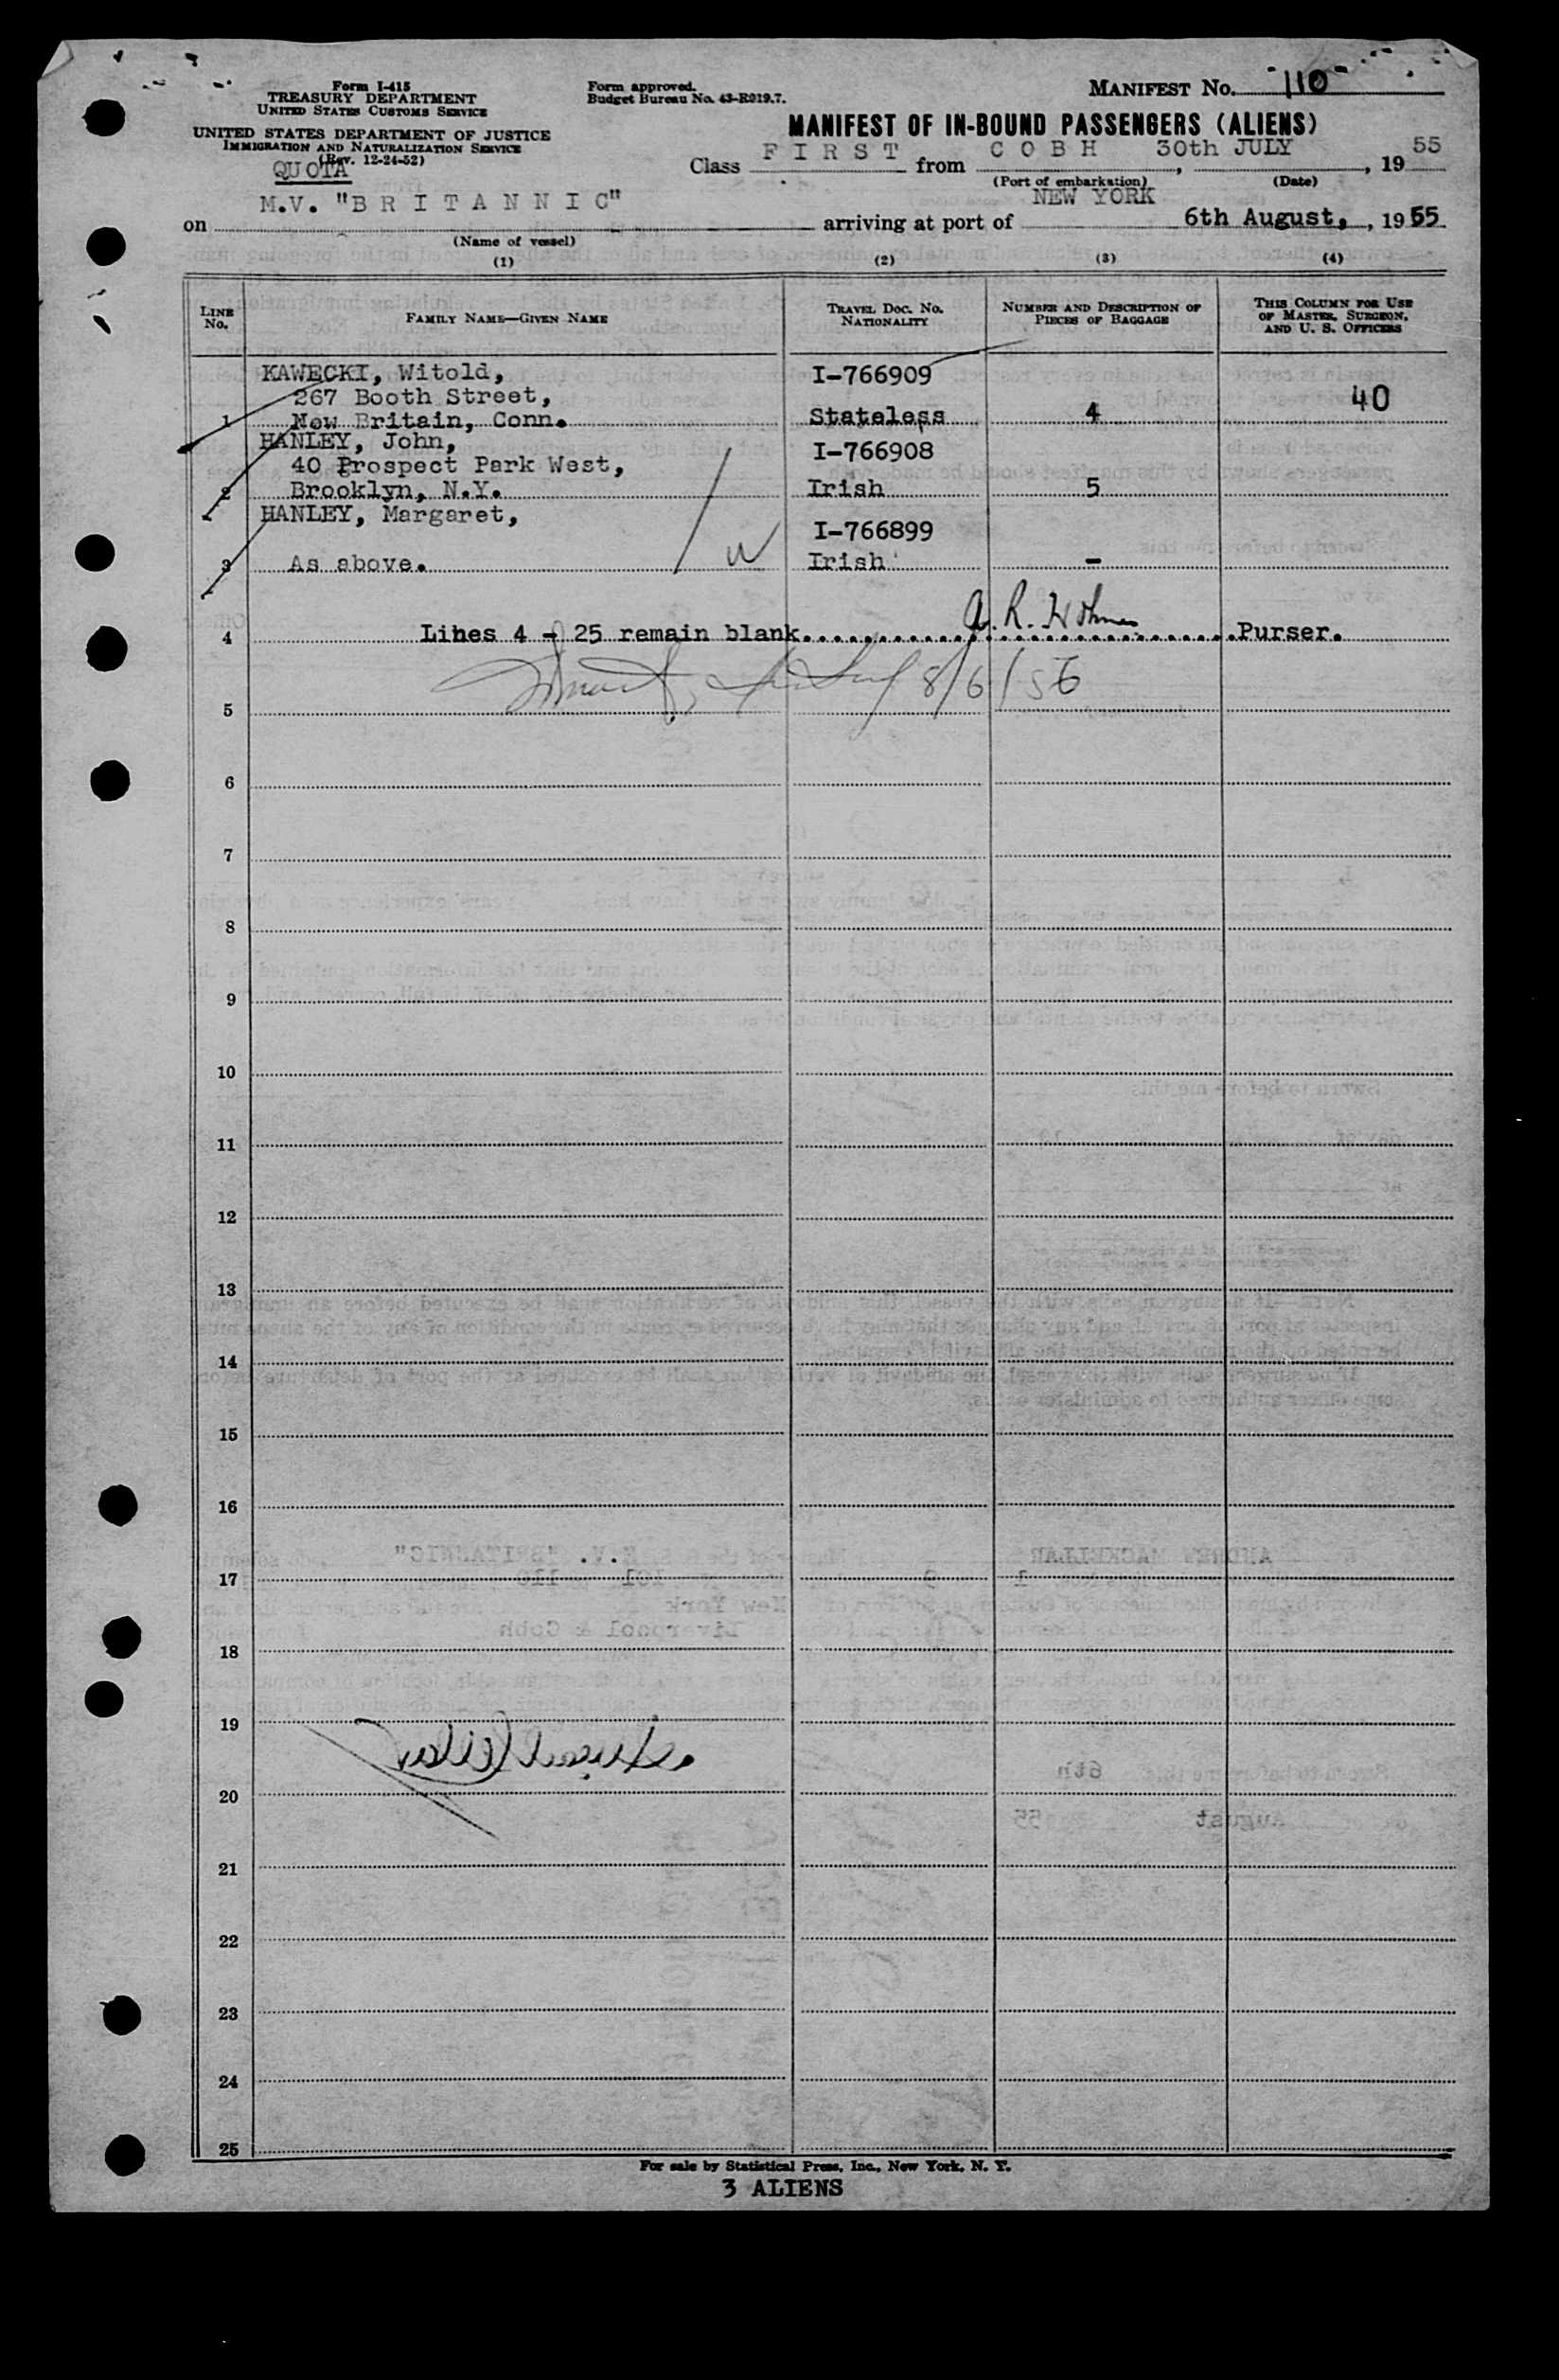 Form I-415
TREASURY DEPARTMENT
UNITED STATES CUSTOMS SERVICE
UNITED STATES DEPARTMENT OF JUSTICE
IMMIGRATION AND NATURALIZATION SERVICE
(Rev. 12-24-52)
QUOTA
Form approved.
Budget Bureau No. 43-R019.7.
MANIFEST No. 110
MANIFEST OF IN-BOUND PASSENGERS (ALIENS)
Class FIRST from COBH 30th JULY, 1955
(Port of embarkation) (Date)
on M.V. "BRITANNIC" arriving at port of NEW YORK 6th August, 1955
(Name of vessel)
(1) (2) (3) (4)
LINE No. FAMILY NAME—GIVEN NAME TRAVEL DOC. NO. NATIONALITY NUMBER AND DESCRIPTION OF PIECES OF BAGGAGE THIS COLUMN FOR USE OF MASTER, SURGEON, AND U. S. OFFICERS
KAWECKI, Witold, I-766909
267 Booth Street, 40
1 New Britain, Conn. Stateless 4
HANLEY, John, I-766908
40 Prospect Park West,
2 Brooklyn, N.Y. Irish 5
HANLEY, Margaret, I-766899
3 As above. Irish -
4 Lines 4 - 25 remain blank. A. R. Purser.
8/6/55
5
6
7
8
9
10
11
12
13
14
15
16
17
18
19
20
21
22
23
24
25
For sale by Statistical Press, Inc., New York, N. Y.
3 ALIENS